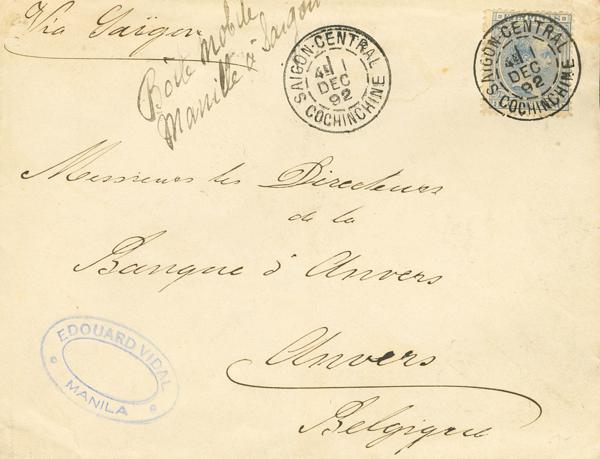 Via Saïgon
Boîte mobile
Manille à Saigon
SAIGON-CENTRAL
4E 1
DEC
92
S. COCHINCHINE
SAIGON-CENTRAL
4E 1
DEC
92
S. COCHINCHINE
Messieurs les Directeurs
de la
Banque d'Anvers
Anvers
Belgique
EDOUARD VIDAL
MANILA